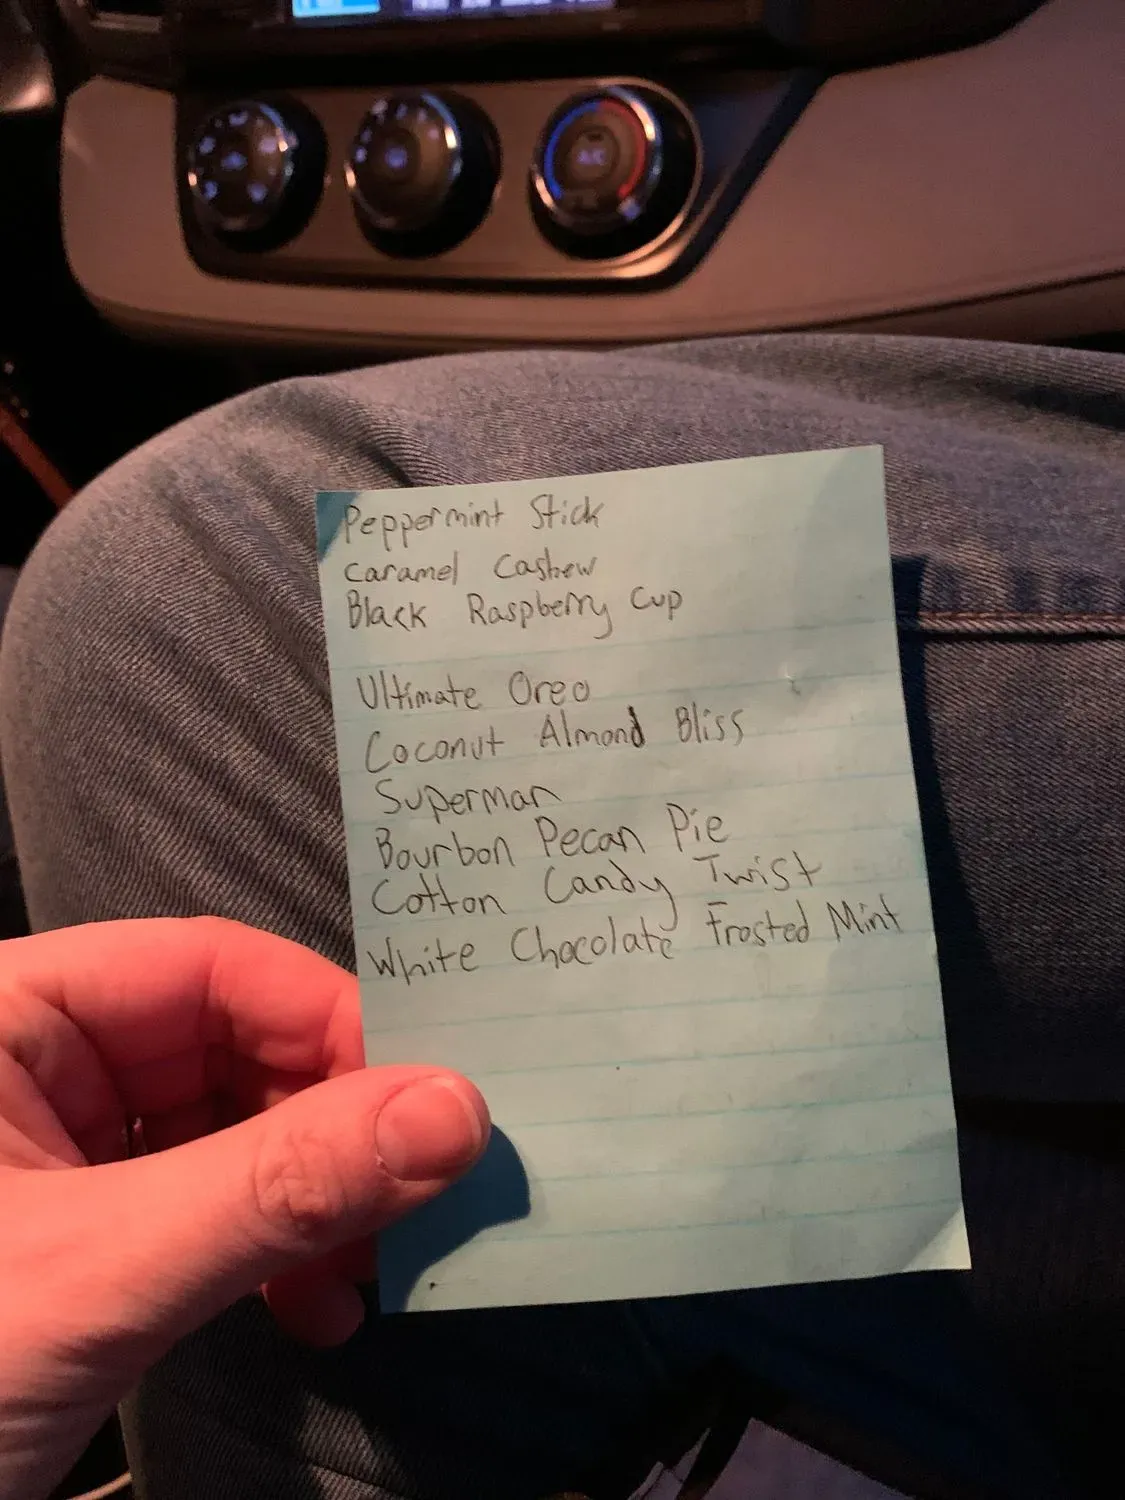 A/C
Peppermint Stick
Caramel Cashew
Black Raspberry Cup
Ultimate Oreo
Coconut Almond Bliss
Superman
Bourbon Pecan Pie
Cotton Candy Twist
White Chocolate Frosted Mint